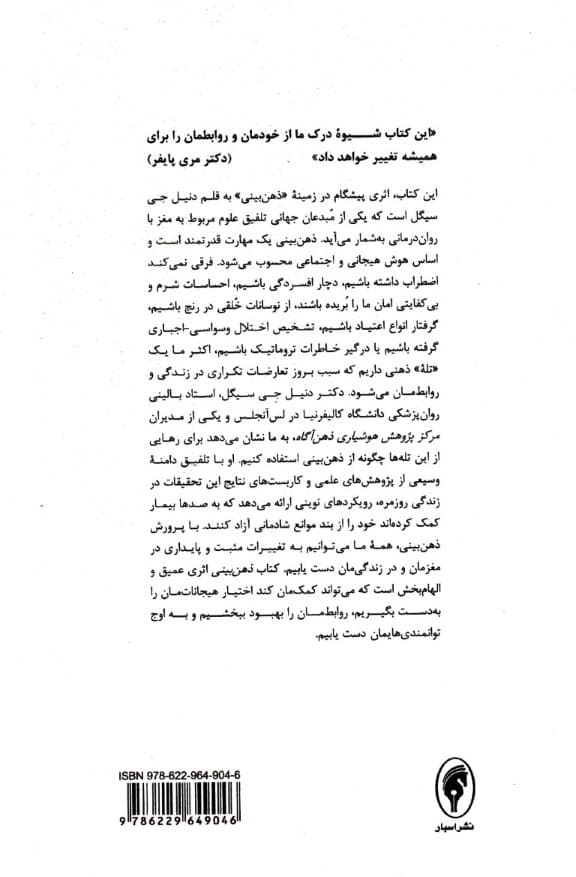 «این کتاب شیوهٔ درک ما از خودمان و روابطمان را برای
همیشه تغییر خواهد داد» (دکتر مری پایفر)
این کتاب، اثری پیشگام در زمینهٔ «ذهن‌بینی» به قلم دنیل جی
سیگل است که یکی از مُبدعان جهانی تلفیق علوم مربوط به مغز با
روان‌درمانی به‌شمار می‌آید. ذهن‌بینی یک مهارت قدرتمند است و
اساس هوش هیجانی و اجتماعی محسوب می‌شود. فرقی نمی‌کند
اضطراب داشته باشیم، دچار افسردگی باشیم، احساسات شرم و
بی‌کفایتی امان ما را بُریده باشند، از نوسانات خُلقی در رنج باشیم،
گرفتار انواع اعتیاد باشیم، تشخیص اختلال وسواسی-اجباری
گرفته باشیم یا درگیر خاطرات تروماتیک باشیم، اکثر ما یک
«تلهٔ» ذهنی داریم که سبب بروز تعارضات تکراری در زندگی و
روابط‌مان می‌شود. دکتر دنیل جِی سیگل، استاد بالینی
روان‌پزشکی دانشگاه کالیفرنیا در لس‌آنجلس و یکی از مدیران
مرکز پژوهش هوشیاری ذهن‌آگاه، به ما نشان می‌دهد برای رهایی
از این تله‌ها چگونه از ذهن‌بینی استفاده کنیم. او با تلفیق دامنهٔ
وسیعی از پژوهش‌های علمی و کاربست‌های نتایج این تحقیقات در
زندگی روزمره، رویکردهای نوینی ارائه می‌دهد که به صدها بیمار
کمک کرده‌اند خود را از بند موانع شادمانی آزاد کنند. با پرورش
ذهن‌بینی، همهٔ ما می‌توانیم به تغییرات مثبت و پایداری در
مغزمان و در زندگی‌مان دست یابیم. کتاب ذهن‌بینی اثری عمیق و
الهام‌بخش است که می‌تواند کمک‌مان کند اختیار هیجانات‌مان را
به‌دست بگیریم، روابط‌مان را بهبود ببخشیم و به اوج
توانمندی‌هایمان دست یابیم.
ISBN 978-622-964-904-6
9 786229 649046
نشر اسبار